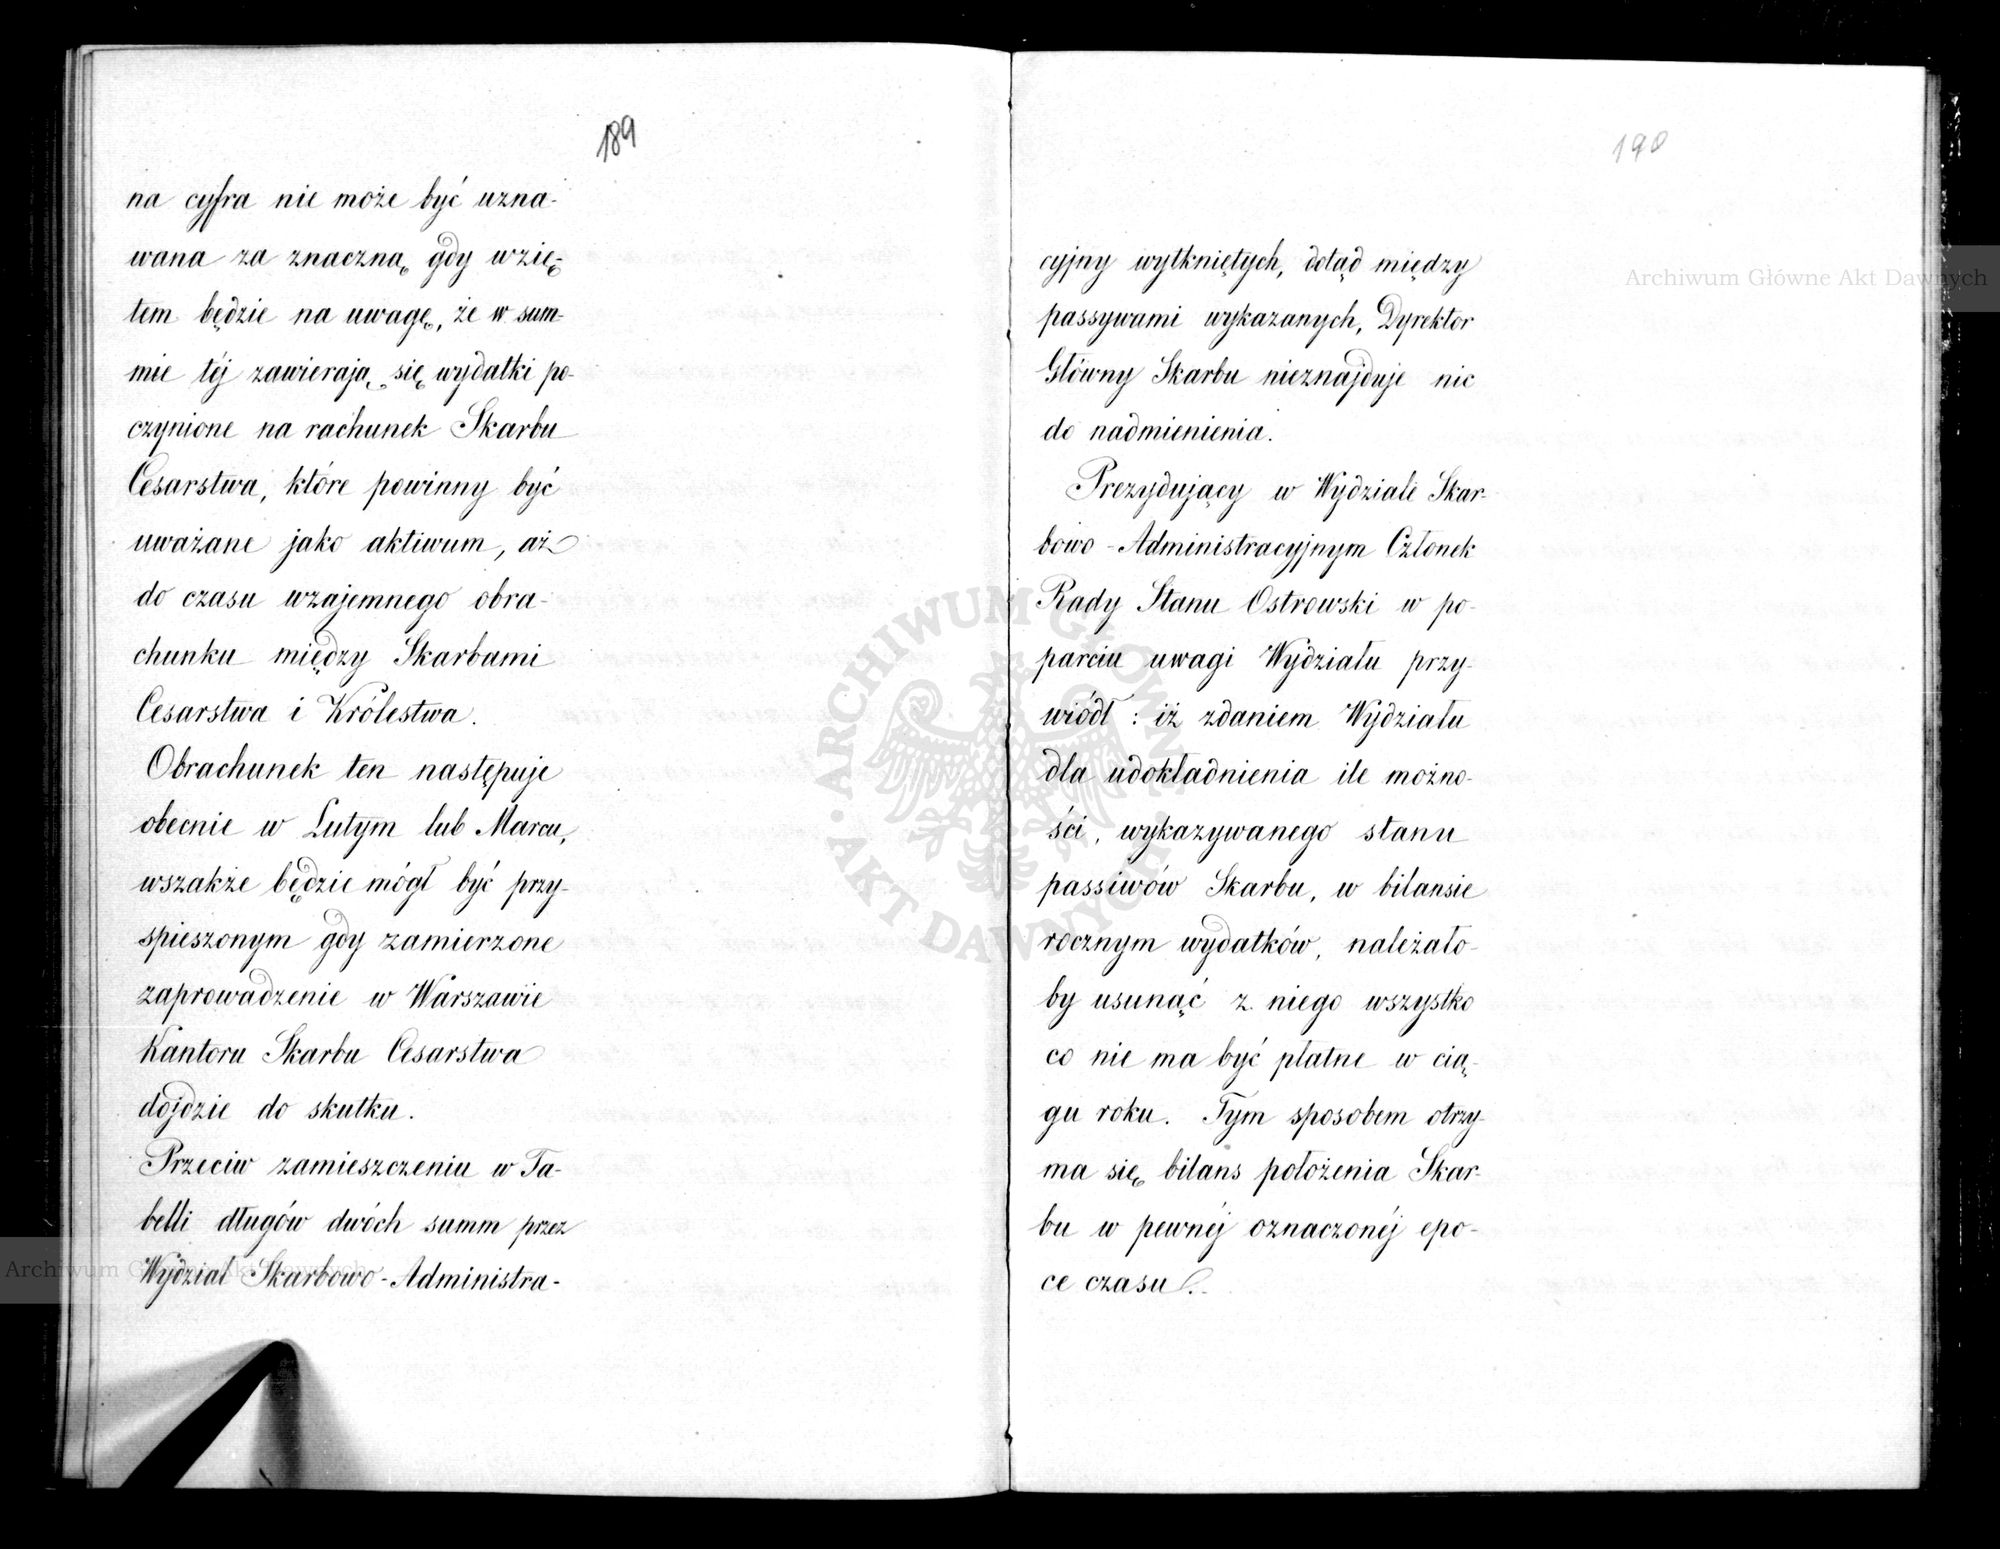 189
na cyfra nie może być uzna-
wana za znaczną, gdy wzię-
tem będzie na uwagę, że w sum-
mie téj zawierają się wydatki po-
czynione na rachunek Skarbu
Cesarstwa, które powinny być
uważane jako aktiwum, aż
do czasu wzajemnego obra-
chunku między Skarbami
Cesarstwa i Królestwa.
Obrachunek ten następuje
obecnie w Lutym lub Marcu,
wszakże będzie mógł być przy-
spieszonym gdy zamierzone
zaprowadzenie w Warszawie
Kantoru Skarbu Cesarstwa
dojdzie do skutku.
Przeciw zamieszczeniu w Ta-
belli długów dwóch summ przez
Wydział Skarbowo-Administra-
190
cyjny wytkniętych, dotąd między
passywami wykazanych, Dyrektor
Główny Skarbu nieznajduje nic
do nadmienienia.
Prezydujący w Wydziale Skar-
bowo-Administracyjnym Członek
Rady Stanu Ostrowski w po-
parciu uwagi Wydziału przy-
wiódł: iż zdaniem Wydziału
dla udokładnienia ile możno-
ści, wykazywanego stanu
passiwów Skarbu, w bilansie
rocznym wydatków, należało-
by usunąć z niego wszystko
co nie ma być płatne w cią-
gu roku. Tym sposobem otrzy-
ma się bilans położenia Skar-
bu w pewnéj oznaczonéj epo-
ce czasu.
Archiwum Główne Akt Dawnych
Archiwum Główne Akt Dawnych
ARCHIWUM GŁÓWNE · AKT DAWNYCH ·